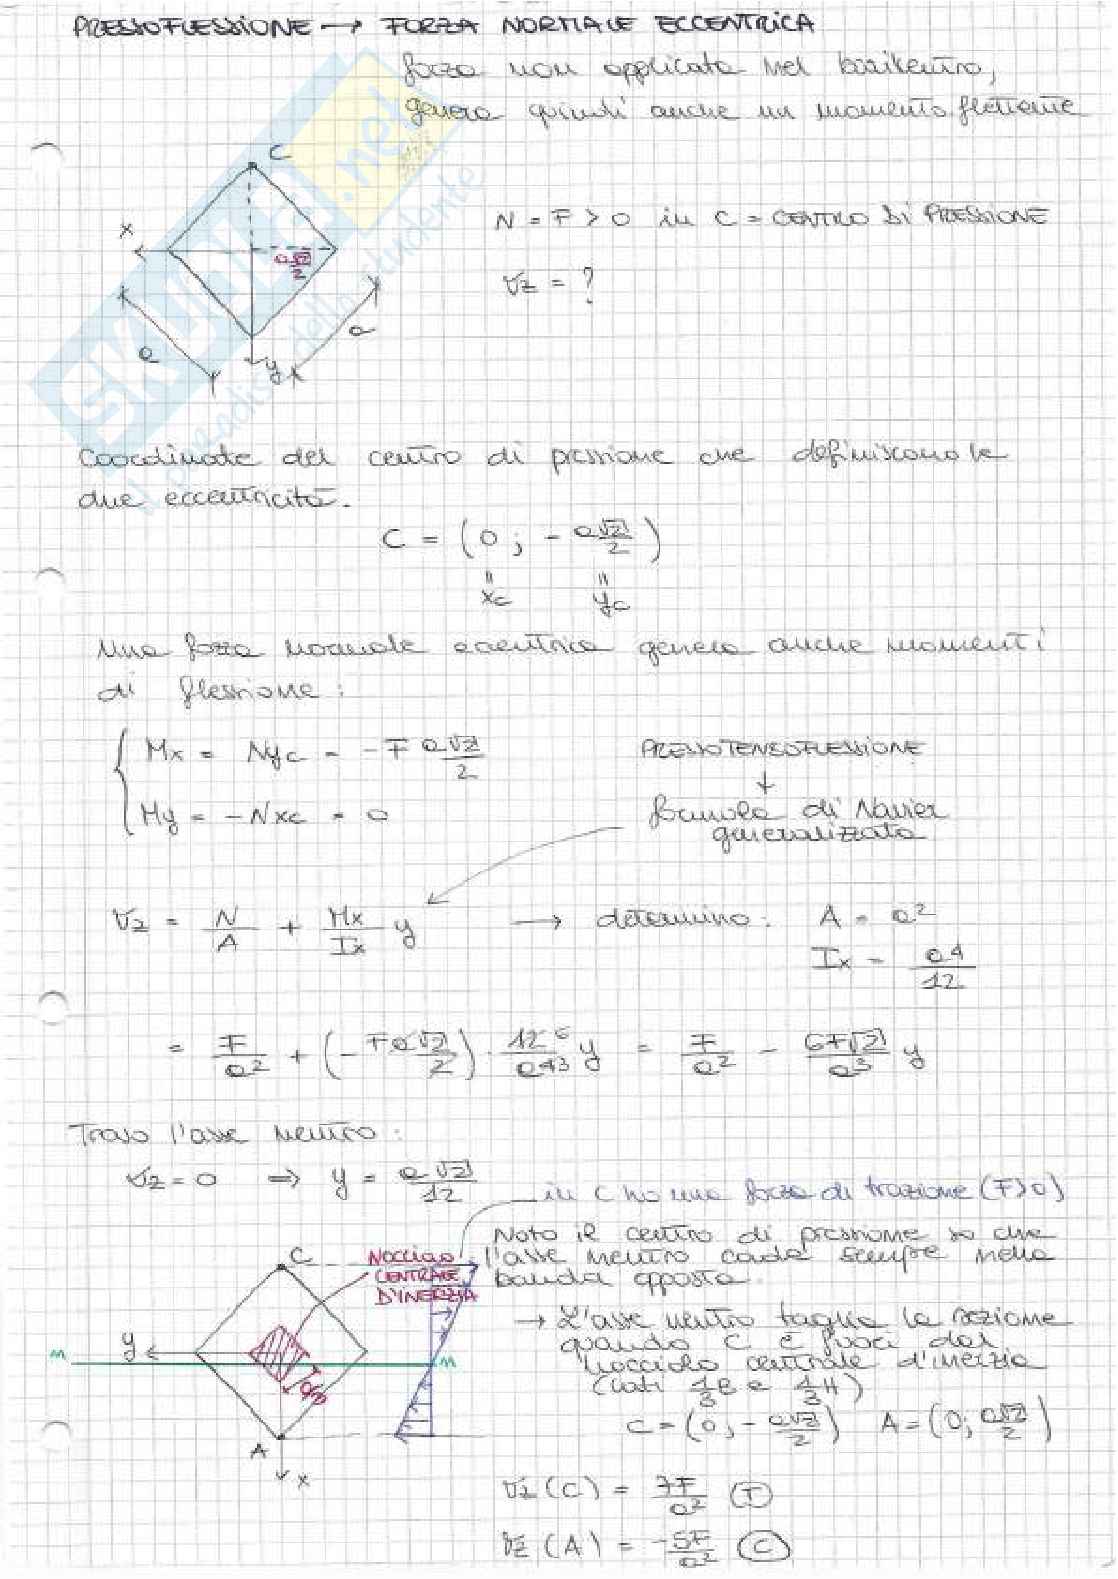 PRESSOFLESSIONE → FORZA NORMALE ECCENTRICA
forza non applicata nel baricentro,
genera quindi anche un momento flettente
C
x
a√2/2
a
a
y
N = F > 0 in C = CENTRO DI PRESSIONE
σz = ?
SKUOLA.net
il paradiso dello studente
Coordinate del centro di pressione che definiscono le
due eccentricità.
C = (0 ; - a√2/2)
= xc = yc
Una forza normale eccentrica genera anche momenti
di flessione:
Mx = Nyc = -F a√2/2
My = -Nxc = 0
PRESSOTENSOFLESSIONE
↓
formula di Navier
generalizzata
σz = N/A + Mx/Ix y → determino: A = a²
Ix = a⁴/12
= F/a² + (- Fa√2/2) · 12 6/a⁴3 y = F/a² - 6F√2/a³ y
Trovo l'asse neutro:
σz = 0 ⇒ y = a√2/12
in C ho una forza di trazione (F>0)
Noto il centro di pressione so che
l'asse neutro cade sempre nella
banda opposta.
→ L'asse neutro taglia la sezione
quando C è fuori dal
nocciolo centrale d'inerzia
(lati 1/3 B e 1/3 H)
C = (0; - a√2/2) A = (0; a√2/2)
C
NOCCIOLO
CENTRALE
D'INERZIA
y
n
n
a/3
A
x
σz (C) = 7F/a² (T)
σz (A) = -5F/a² (C)